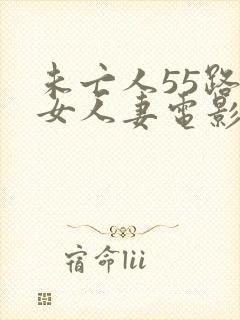 未亡人55路
女人妻电影
宿命lii